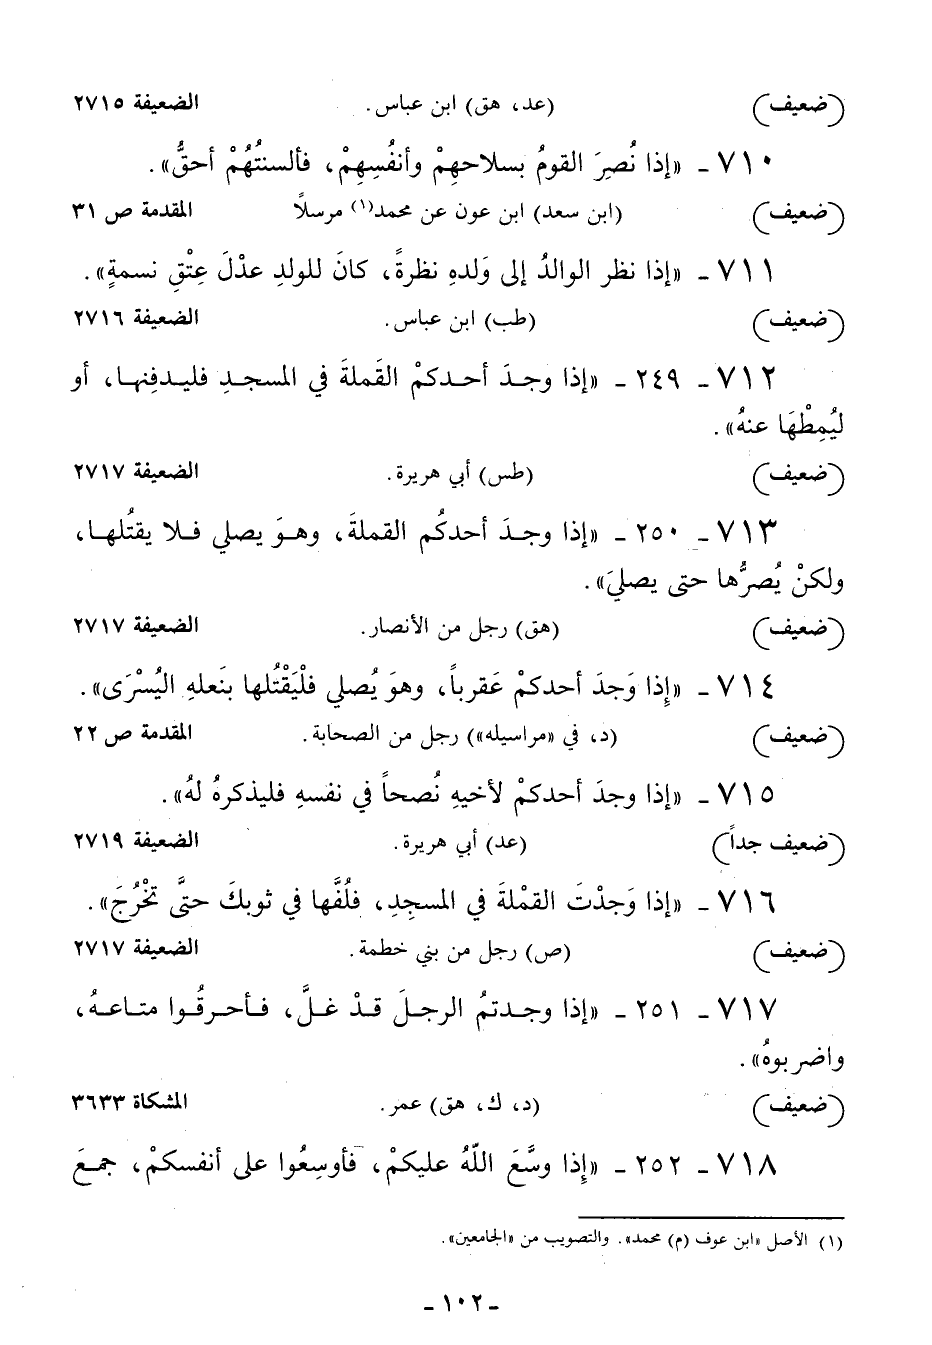 (ضعيف) (عد، هق) ابن عباس. الضعيفة ٢٧١٥
٧١٠ - «إذا نُصِرَ القومُ بسلاحِهِمْ وأنفُسِهِمْ، فألسنتُهُمْ أحقُّ».
(ضعيف) (ابن سعد) ابن عون عن محمد(١) مرسلاً المقدمة ص ٣١
٧١١ - «إذا نظر الوالدُ إلى وَلدهِ نظرةً، كانَ للولدِ عدْلَ عِتْقِ نسمةٍ».
(ضعيف) (طب) ابن عباس. الضعيفة ٢٧١٦
٧١٢ - ٢٤٩ - «إذا وجدَ أحدكمْ القَملةَ في المسجدِ فليدفِنها، أو
ليُمِطْهَا عنهُ».
(ضعيف) (طس) أبي هريرة. الضعيفة ٢٧١٧
٧١٣ - ٢٥٠ - «إذا وجدَ أحدكُم القملةَ، وهوَ يصلي فلا يقتُلها،
ولكنْ يُصرُّها حتى يصليَ».
(ضعيف) (هق) رجل من الأنصار. الضعيفة ٢٧١٧
٧١٤ - «إِذا وَجدَ أحدكمْ عَقرباً، وهوَ يُصلي فلْيَقْتُلها بنَعلهِ اليُسْرَى».
(ضعيف) (د، في «مراسيله») رجل من الصحابة. المقدمة ص ٢٢
٧١٥ - «إذا وجدَ أحدكمْ لأخيهِ نُصحاً في نفسهِ فليذكرهُ لهُ».
(ضعيف جداً) (عد) أبي هريرة. الضعيفة ٢٧١٩
٧١٦ - «إذا وَجدْتَ القمْلةَ في المسجِدِ، فلُفَّها في ثوبكَ حتَّى تخْرُجَ».
(ضعيف) (ص) رجل من بني خطمة. الضعيفة ٢٧١٧
٧١٧ - ٢٥١ - «إذا وجدتمُ الرجلَ قدْ غلَّ، فأحرقُوا متاعهُ،
واضربوهُ».
(ضعيف) (د، ك، هق) عمر. المشكاة ٣٦٣٣
٧١٨ - ٢٥٢ - «إِذا وسَّعَ اللّهُ عليكمْ، فأوسِعُوا على أنفسكمْ، جمعَ
(١) الأصل «ابن عوف (م) محمد». والتصويب من «الجامعين».
- ١٠٢ -